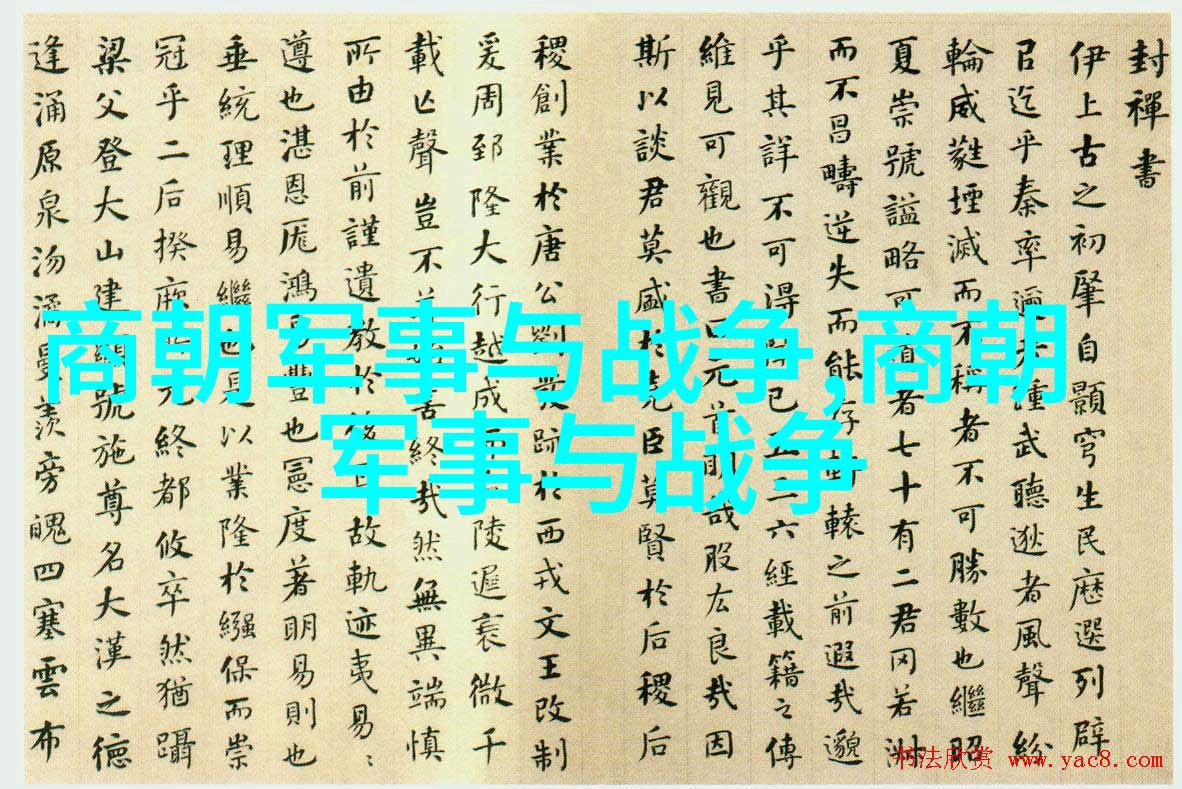 封禪書
伊上古之初肇自顥穹生民歷選列辟
㠯迄乎秦率邇者踵武聽逖者風聲紛
輪威蕤堙滅而不稱者不可勝數也繼昭
夏崇號謚略可道者七十有二君罔若淑
而不昌疇逆失而能存軒轅之前遐哉邈
乎其詳不可得聞已五三六經載籍之傳
維見可觀也書曰元首明哉股肱良哉因
斯以談君莫盛於堯臣莫賢於后稷后
稷創業於唐公劉發跡於西戎文王改制
爰周郅隆大行越成而陵遲衰微千
載亡聲豈不善始善終哉然無異端慎
所由於前謹遺教於後耳故軌迹夷易易
遵也湛恩厖鴻易豐也憲度著明易則也
垂統理順易繼也是以業隆於繈保而崇
冠乎二后揆厥所元終都攸卒然猶躡
梁父登大山建顯號施尊名大漢之德
逢涌原泉沕潏曼羨旁魄四塞雲布
商朝军事与战争,商朝
军事与战争
书法欣赏 www.yac8.com